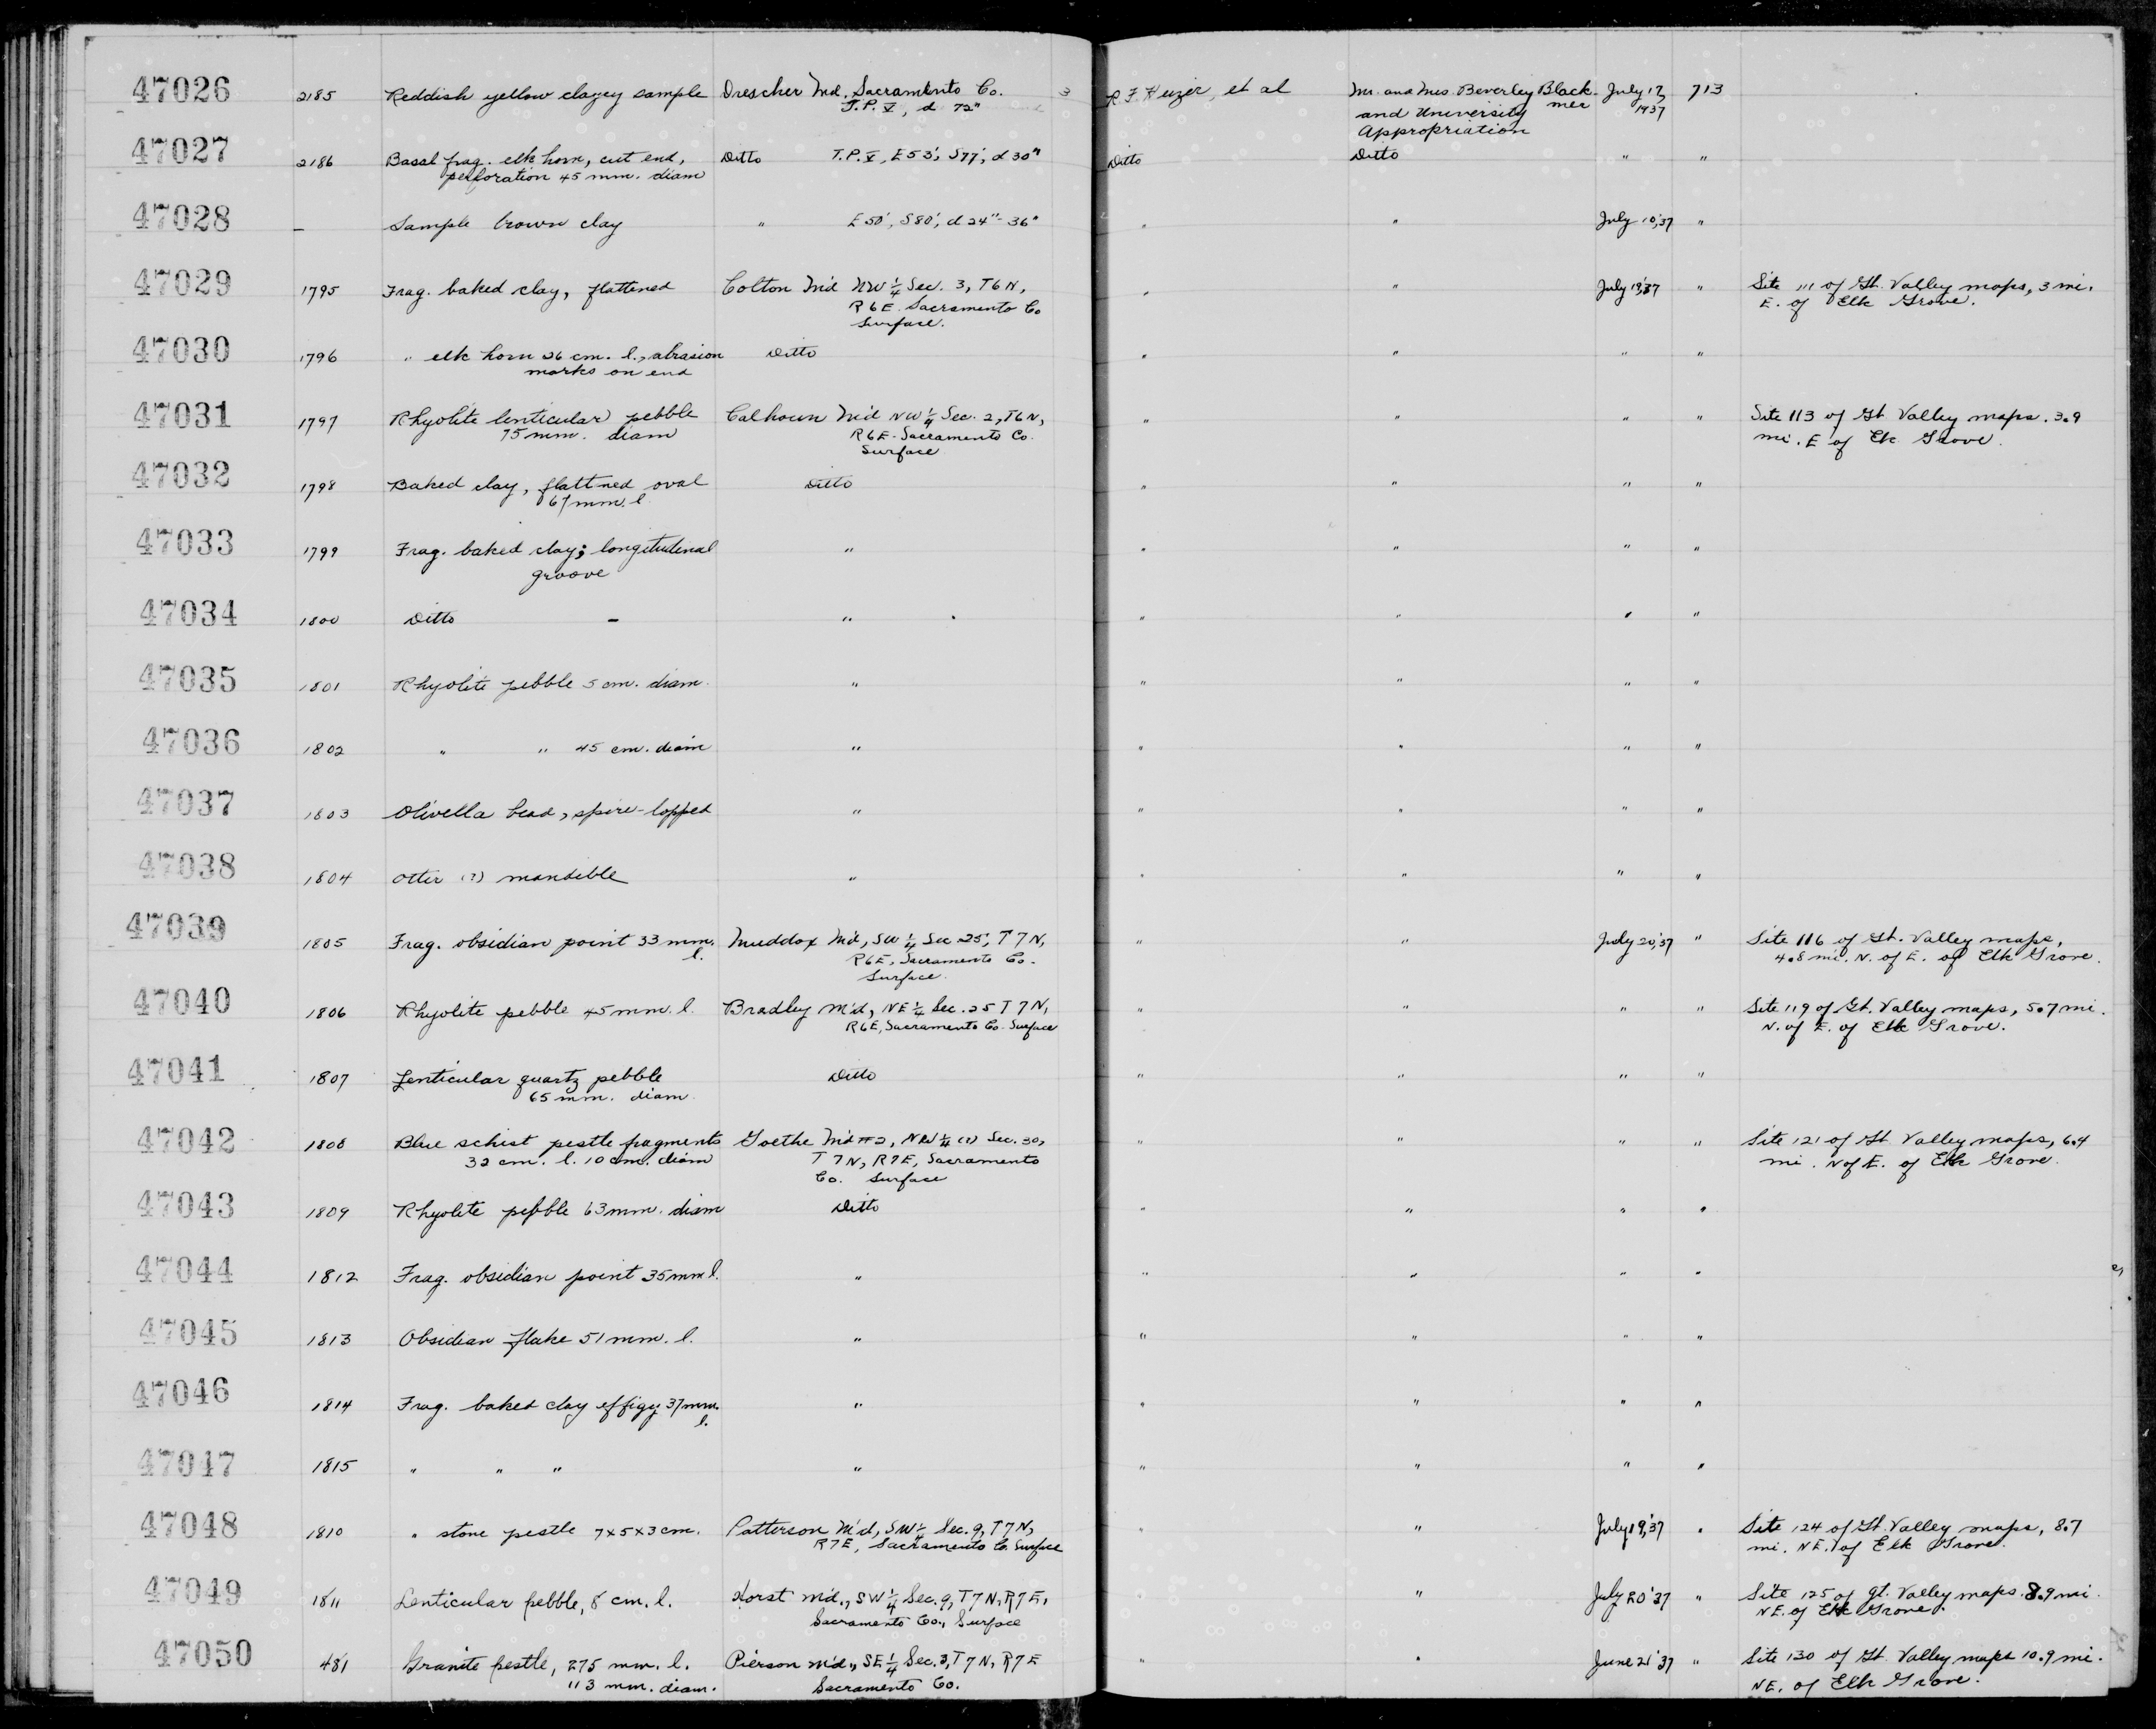 47026 2185 Reddish yellow clayey sample Drescher Md. Sacramento Co. 3 R. F. Heizer, et al Mr. and Mrs. Beverley Black- July 17, 713
T.P. V, d 72" and University mer 1937
Appropriation
47027 2186 Basal frag. elk horn, cut end, Ditto T.P. V, E53', S77', d 30" Ditto Ditto " "
perforation 45 mm. diam
47028 – Sample brown clay " E50', S80', d 24"-36" " " July 10,'37 "
47029 1795 Frag. baked clay, flattened Colton Md NW 1/4 Sec. 3, T6N, " " July 19,'37 " Site 111 of Gt. Valley maps, 3 mi.
R6E Sacramento Co E. of Elk Grove.
Surface.
47030 1796 " elk horn 26 cm. l., abrasion Ditto " " " "
marks on end
47031 1797 Rhyolite lenticular pebble Calhoun Md NW 1/4 Sec. 2, T6N, " " " " Site 113 of Gt Valley maps. 3.9
75 mm. diam R6E. Sacramento Co. mi. E of Elk Grove.
Surface
47032 1798 Baked clay, flattned oval Ditto " " " "
67 mm. l
47033 1799 Frag. baked clay; longitutinal " " " " "
groove
47034 1800 Ditto – " " " " "
47035 1801 Rhyolite pebble 5 cm. diam. " " " " "
47036 1802 " " 45 cm. diam " " " " "
47037 1803 Olivella bead, spire-lopped " " " " "
47038 1804 Otter (?) mandible " " " " "
47039 1805 Frag. obsidian point 33 mm. Muddox Md, SW 1/4 Sec 25, T7N, " " July 20,'37 " Site 116 of Gt. Valley maps,
l. R6E, Sacramento Co. 4.8 mi. N. of E. of Elk Grove.
Surface.
47040 1806 Rhyolite pebble 45 mm. l. Bradley Md, NE 1/4 Sec. 25 T7N, " " " " Site 119 of Gt. Valley maps, 5.7 mi.
R6E, Sacramento Co. Surface N. of E. of Elk Grove.
47041 1807 Lenticular quartz pebble Ditto " " " "
65 mm. diam.
47042 1808 Blue schist pestle fragments Goethe Md #2, NW 1/4 (?) Sec. 30, " " " " Site 121 of Gt Valley maps, 6.4
32 cm. l. 10 cm. diam T7N, R7E, Sacramento mi. N of E. of Elk Grove.
Co. Surface
47043 1809 Rhyolite pebble 63 mm. diam Ditto " " " "
47044 1812 Frag. obsidian point 35 mm l. " " " " "
47045 1813 Obsidian flake 51 mm. l. " " " " "
47046 1814 Frag. baked clay effigy 37 mm. " " " " "
l.
47047 1815 " " " " " " " "
47048 1810 " stone pestle 7x5x3 cm. Patterson Md, SW 1/4 Sec. 9, T7N, " " July 19,'37 " Site 124 of Gt. Valley maps, 8.7
R7E, Sacramento Co. Surface mi. NE. of Elk Grove.
47049 1811 Lenticular pebble, 8 cm. l. Horst Md., SW 1/4 Sec. 9, T7N, R7E, " " July 20'37 " Site 125 of Gt. Valley maps. 8.9 mi.
Sacramento Co., Surface NE. of Elk Grove.
47050 481 Granite pestle, 275 mm. l. Pierson Md., SE 1/4 Sec. 3, T7N, R7E " " June 21'37 " Site 130 of Gt. Valley maps 10.9 mi.
113 mm. diam. Sacramento Co. NE. of Elk Grove.